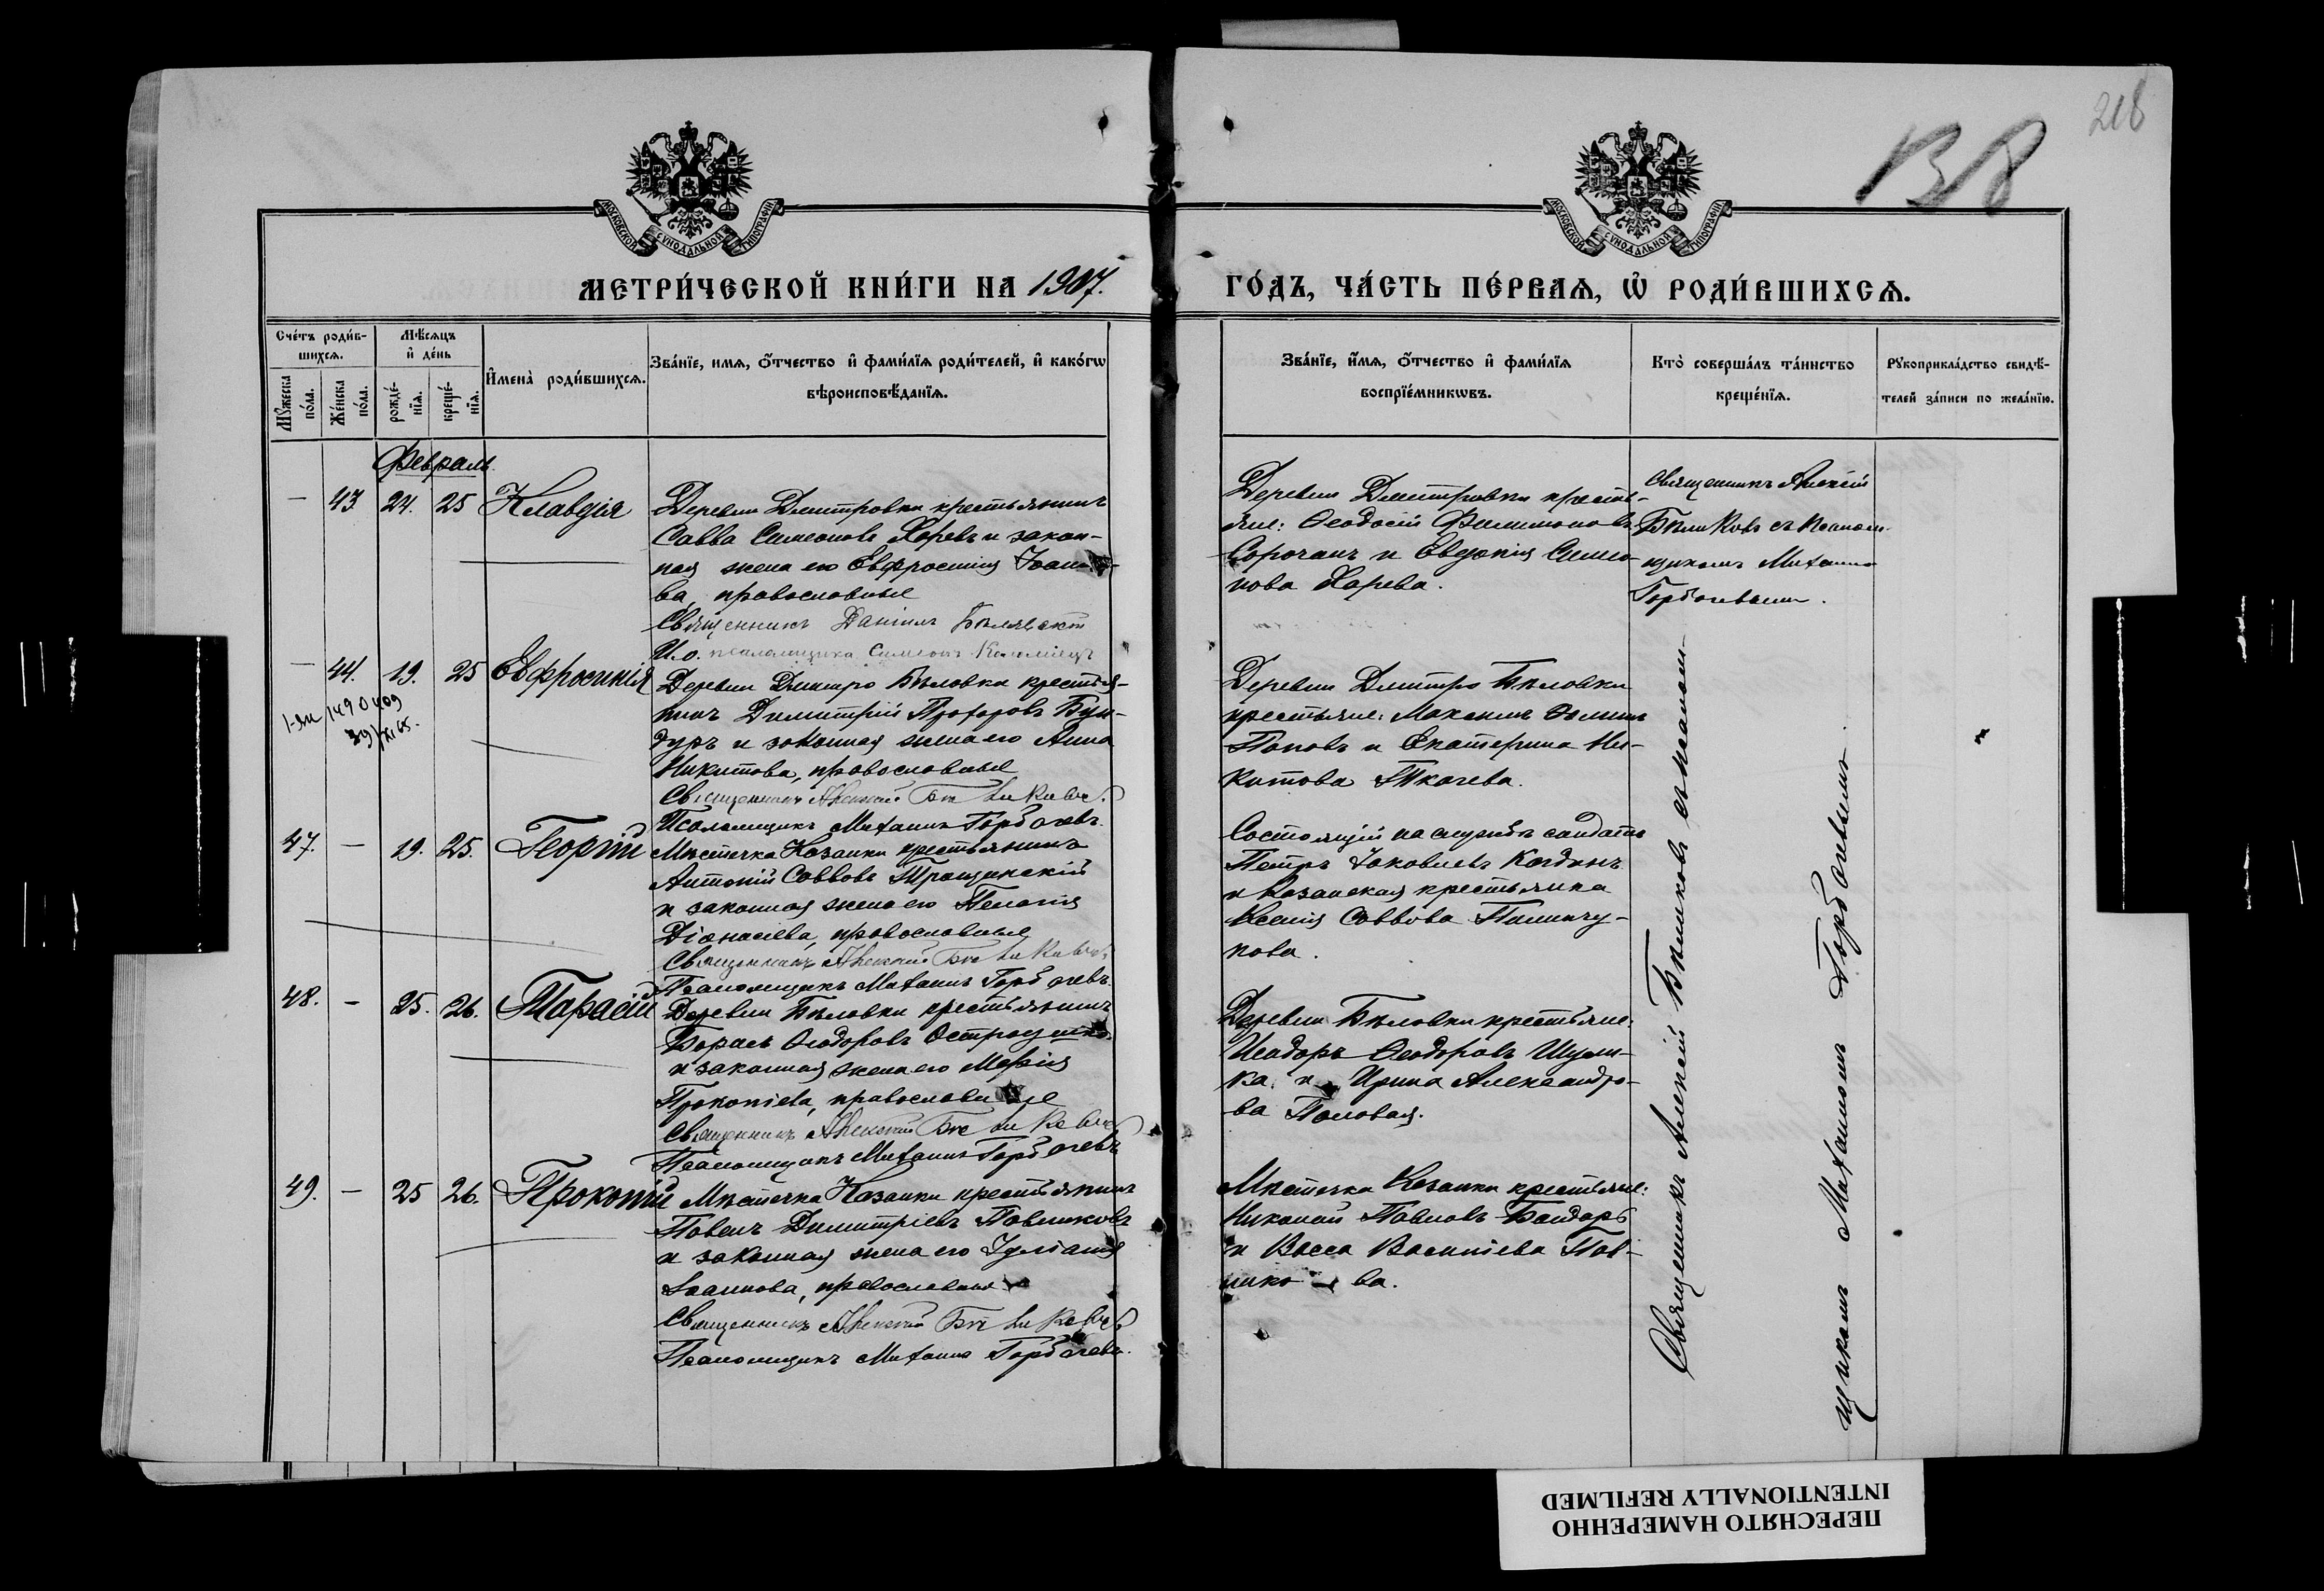 218
МОСКОВСКОЙ СУНОДАЛЬНОЙ ТИПОГРАФІИ
МОСКОВСКОЙ СУНОДАЛЬНОЙ ТИПОГРАФІИ
МЕТРИ́ЧЕСКОЙ КНИ́ГИ НА 1907.
ГО́ДЪ, ЧА́СТЬ ПЕ́РВАѦ, Ѽ РОДИ́ВШИХСѦ.
Сче́тъ роди́в-
шихсѧ.
Мꙋжеска по́ла.
Же́нска по́ла.
Мѣ́сѧцъ
и҆ де́нь
рожде́-
нїѧ.
креще́-
нїѧ.
И҆мена̀ роди́вшихсѧ.
Зва́нїе, имѧ, ѻ҆́тчество и҆ фами́лїѧ роди́телей, и҆ како́гѡ
вѣроисповѣ́данїѧ.
Зва́нїе, и҆́мѧ, ѻ҆́тчество и҆ фами́лїѧ
воспрїе́мникѡвъ.
Кто̀ соверша́лъ та́инство
креще́нїѧ.
Рꙋкоприкла́дство свидѣ́-
телей за́писи по жела́нїю.
Февраль.
— 43 24. 25 Клавдія
Деревни Дмитровки крестьянинъ
Савва Симеоновъ Харевъ и закон-
ная жена его Евфросинія Іоанно-
ва, православные
Священникъ Даніилъ
И.о. псаломщика Симеонъ
Деревни Дмитровки кресть-
яне: Ѳеодосій Филимоновъ
Сорочанъ и Евдокія Симео-
нова Харева.
Священникъ Алексій
Бѣликовъ съ псалом-
щикомъ Михаиломъ
Горбачевымъ.
— 44. 19. 25 Евфросинія
1490409
Деревни Дмитро Бѣловки крестья-
нинъ Димитрій Прохоровъ Бун-
дуръ и законная жена его Анна
Никитова, православные
Священникъ Алексій Бѣликовъ
Псаломщикъ Михаилъ Горбачевъ.
Деревни Дмитро Бѣловки
крестьяне: Максимъ Ѳоминъ
Поповъ и Екатерина Ни-
китова Ткачева.
47. — 19. 25. Георгій
Мѣстечка Казанки крестьянинъ
Антоній Саввовъ Трощинскій
и законная жена его Пелагія
Діонисіева, православные
Священникъ Алексій Бѣликовъ
Псаломщикъ Михаилъ Горбачевъ.
Состоящій на службѣ солдатъ
Петръ Іаковлевъ
и Казанская крестьянка
Ксенія Саввова
нова.
48. — 25. 26. Тарасій
Деревни Бѣловки крестьянинъ
Ѳеодоровъ
и законная жена его Марія
Прокопіева, православные
Священникъ Алексій Бѣликовъ
Псаломщикъ Михаилъ Горбачевъ
Деревни Бѣловки крестьяне:
Исидоръ Ѳеодоровъ Шули-
ка и Ирина Александро-
ва Половая.
49. — 25 26. Прокопій
Мѣстечка Казанки крестьянинъ
Павелъ Димитріевъ Павликовъ
и законная жена его Іуліанія
Іоаннова, православные
Священникъ Алексій Бѣликовъ
Псаломщикъ Михаилъ Горбачевъ.
Мѣстечка Казанки крестьяне:
Николай Павловъ Бондарь
и Васса Василіева Пав-
лико - ва.
Священникъ Алексій Бѣликовъ съ псалом-
щикомъ Михаиломъ Горбачевымъ.
ПЕРЕСНЯТО НАМЕРЕННО
INTENTIONALLY REFILMED